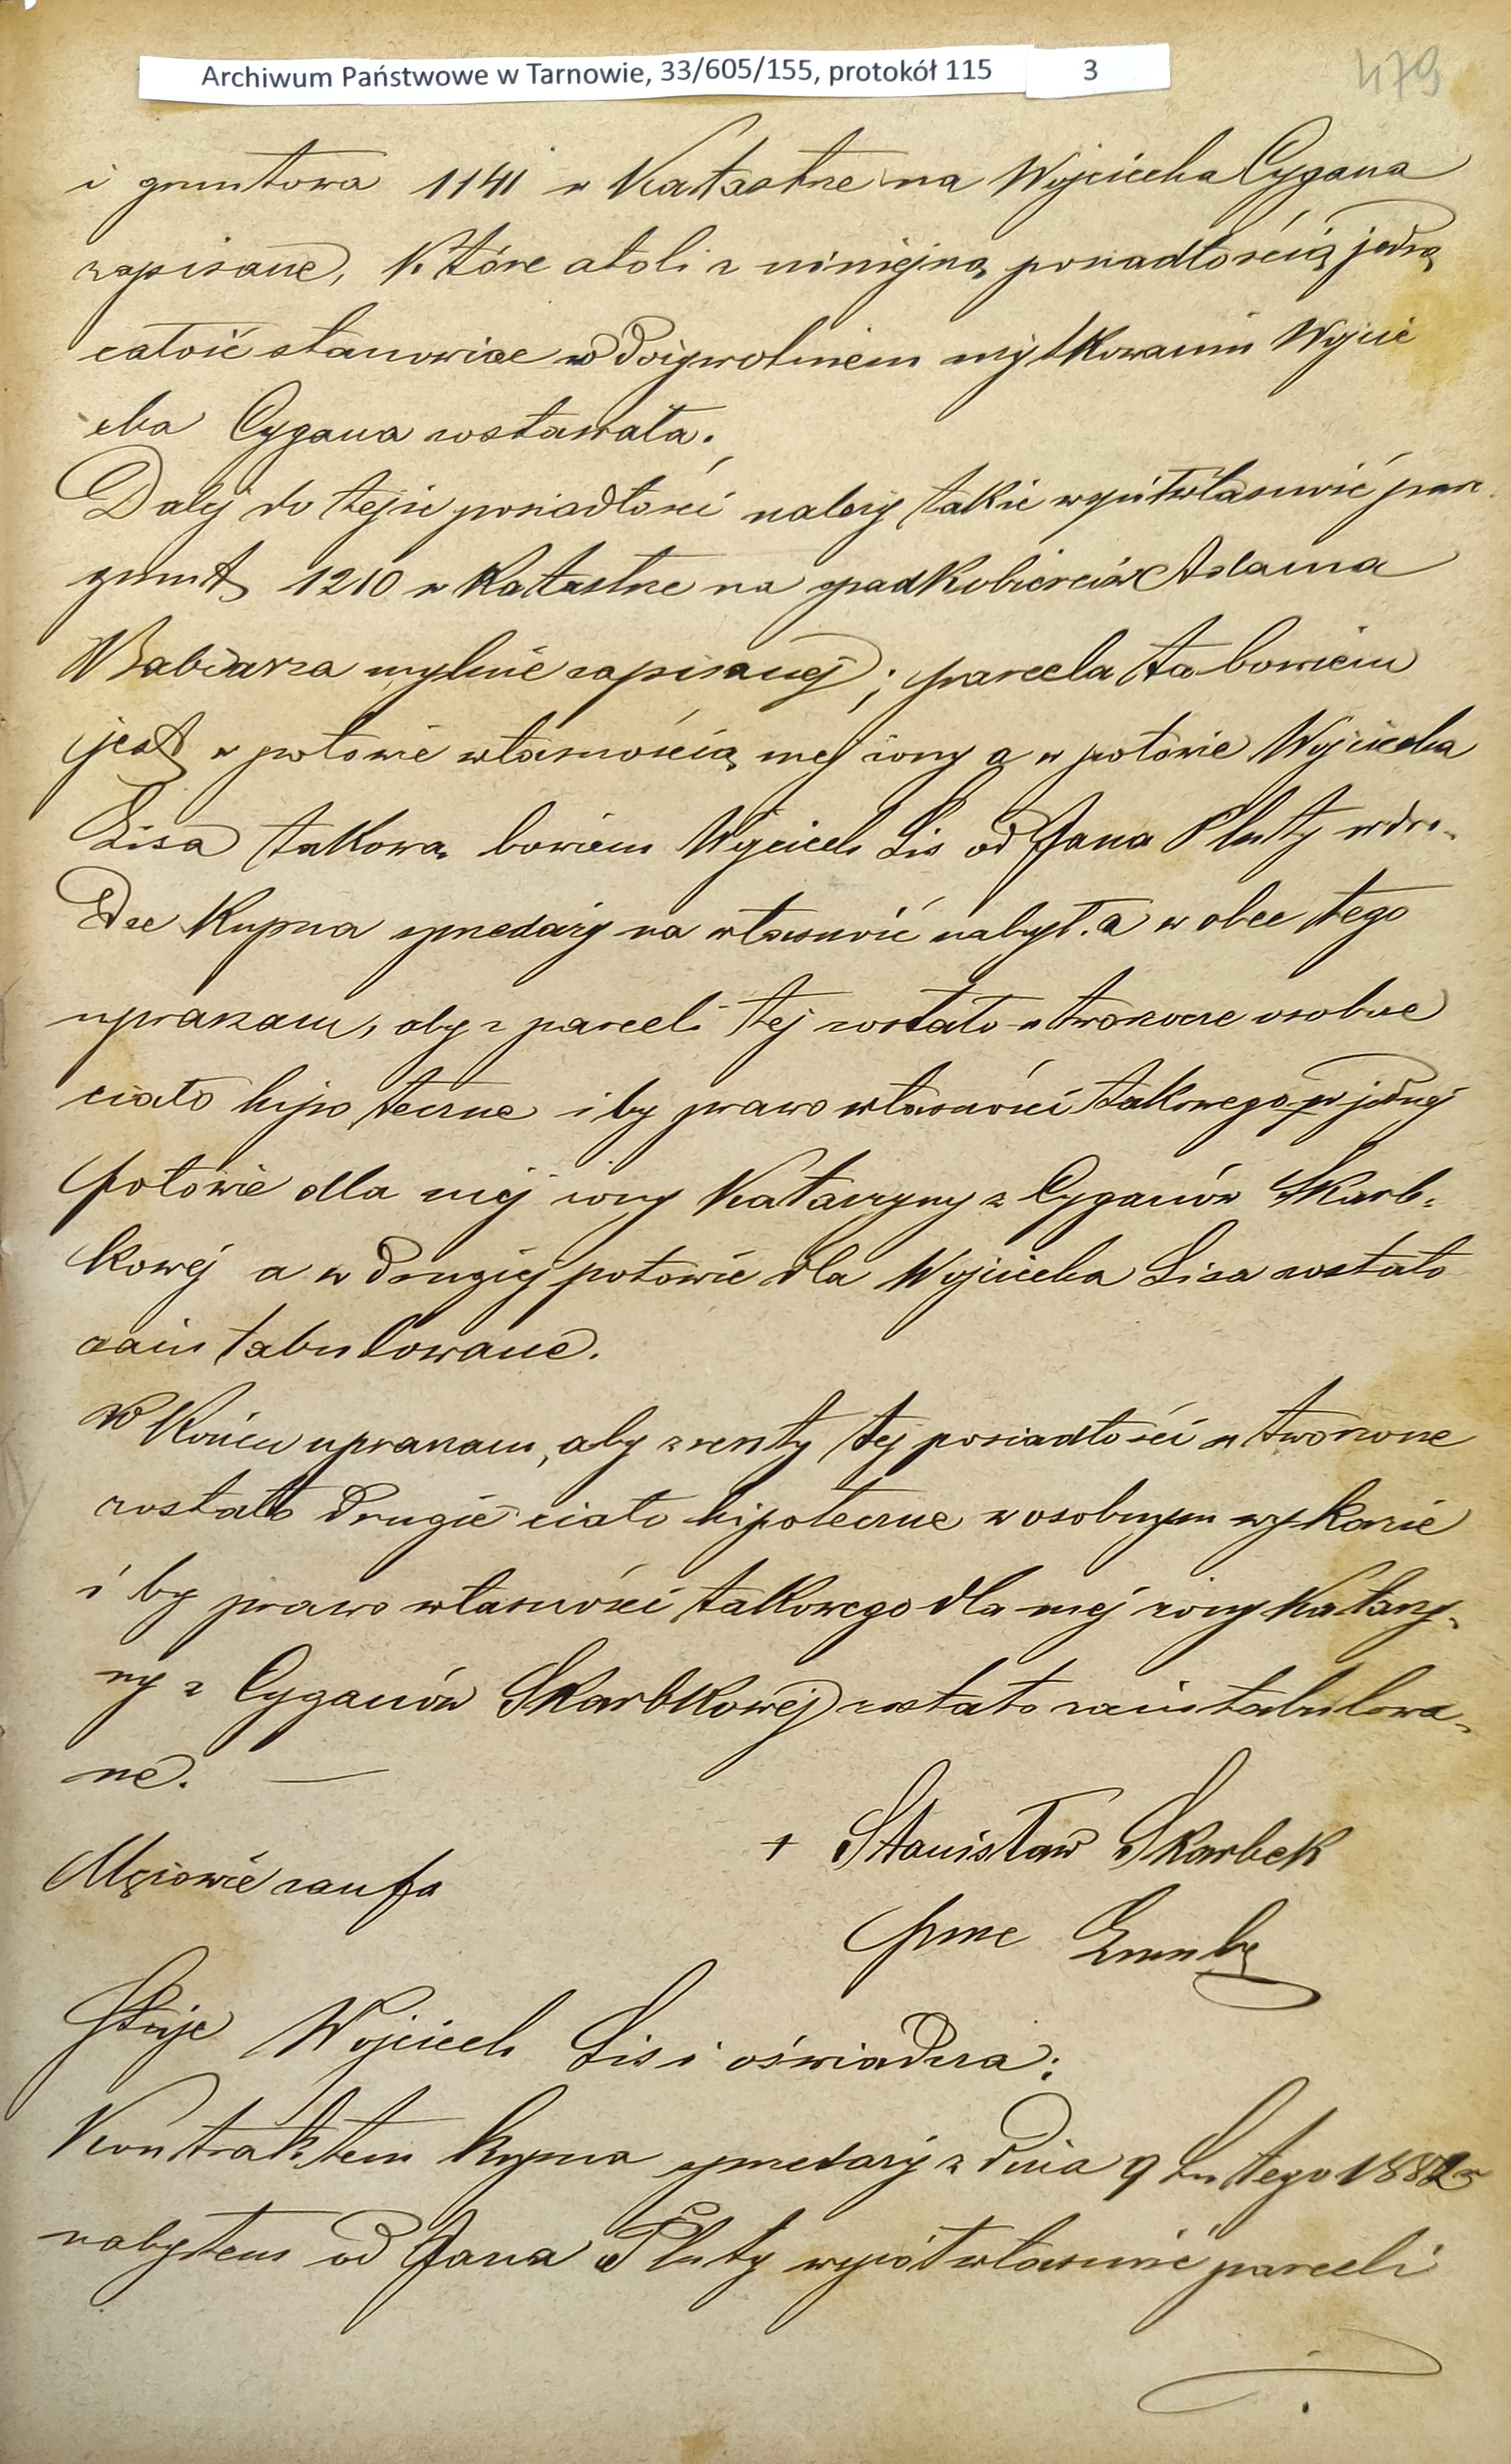 Archiwum Państwowe w Tarnowie, 33/605/155, protokół 115 3
479
i gruntowa 1141 w Katastrze na Wojciecha Cygana
zapisane, które atoli z niniejszą posiadłością jedną
całość stanowiąc w dożywotniem użytkowaniu Wojcie
cha Cygana zostawała.
Dalej do tejże posiadłości należy także współwłasność parc.
grunt 1210 w Katastrze na spadkobierców Adama
Babiarza mylnie zapisanej; parcela ta bowiem
jest w połowie własnością mej żony a w połowie Wojciecha
Lisa takową bowiem Wojciech Lis od Jana Pluty w dro-
dze kupna sprzedaży na własność nabył. a wobec tego
upraszam, aby z parceli tej zostało utworzone osobne
ciało hipoteczne i by prawo własności takowego w jednej
połowie dla mej żony Katarzyny z Cyganów Skarb-
kowej a w drugiej połowie dla Wojciecha Lisa zostało
zaintabulowane.
W końcu upraszam, aby z reszty tej posiadłości utworzone
zostało drugie ciało hipoteczne w osobnym wykazie
i by prawo własności takowego dla mej żony Katarzy-
ny z Cyganów Skarbkowej zostało zaintabulowa-
ne. —
Mężowie zaufa + Stanisław Skarbek
Staje Wojciech Lis i oświadcza:
Kontraktem kupna sprzedaży z dnia 9 Lutego 1882 r
nabyłem od Jana Pluty współwłasność parceli